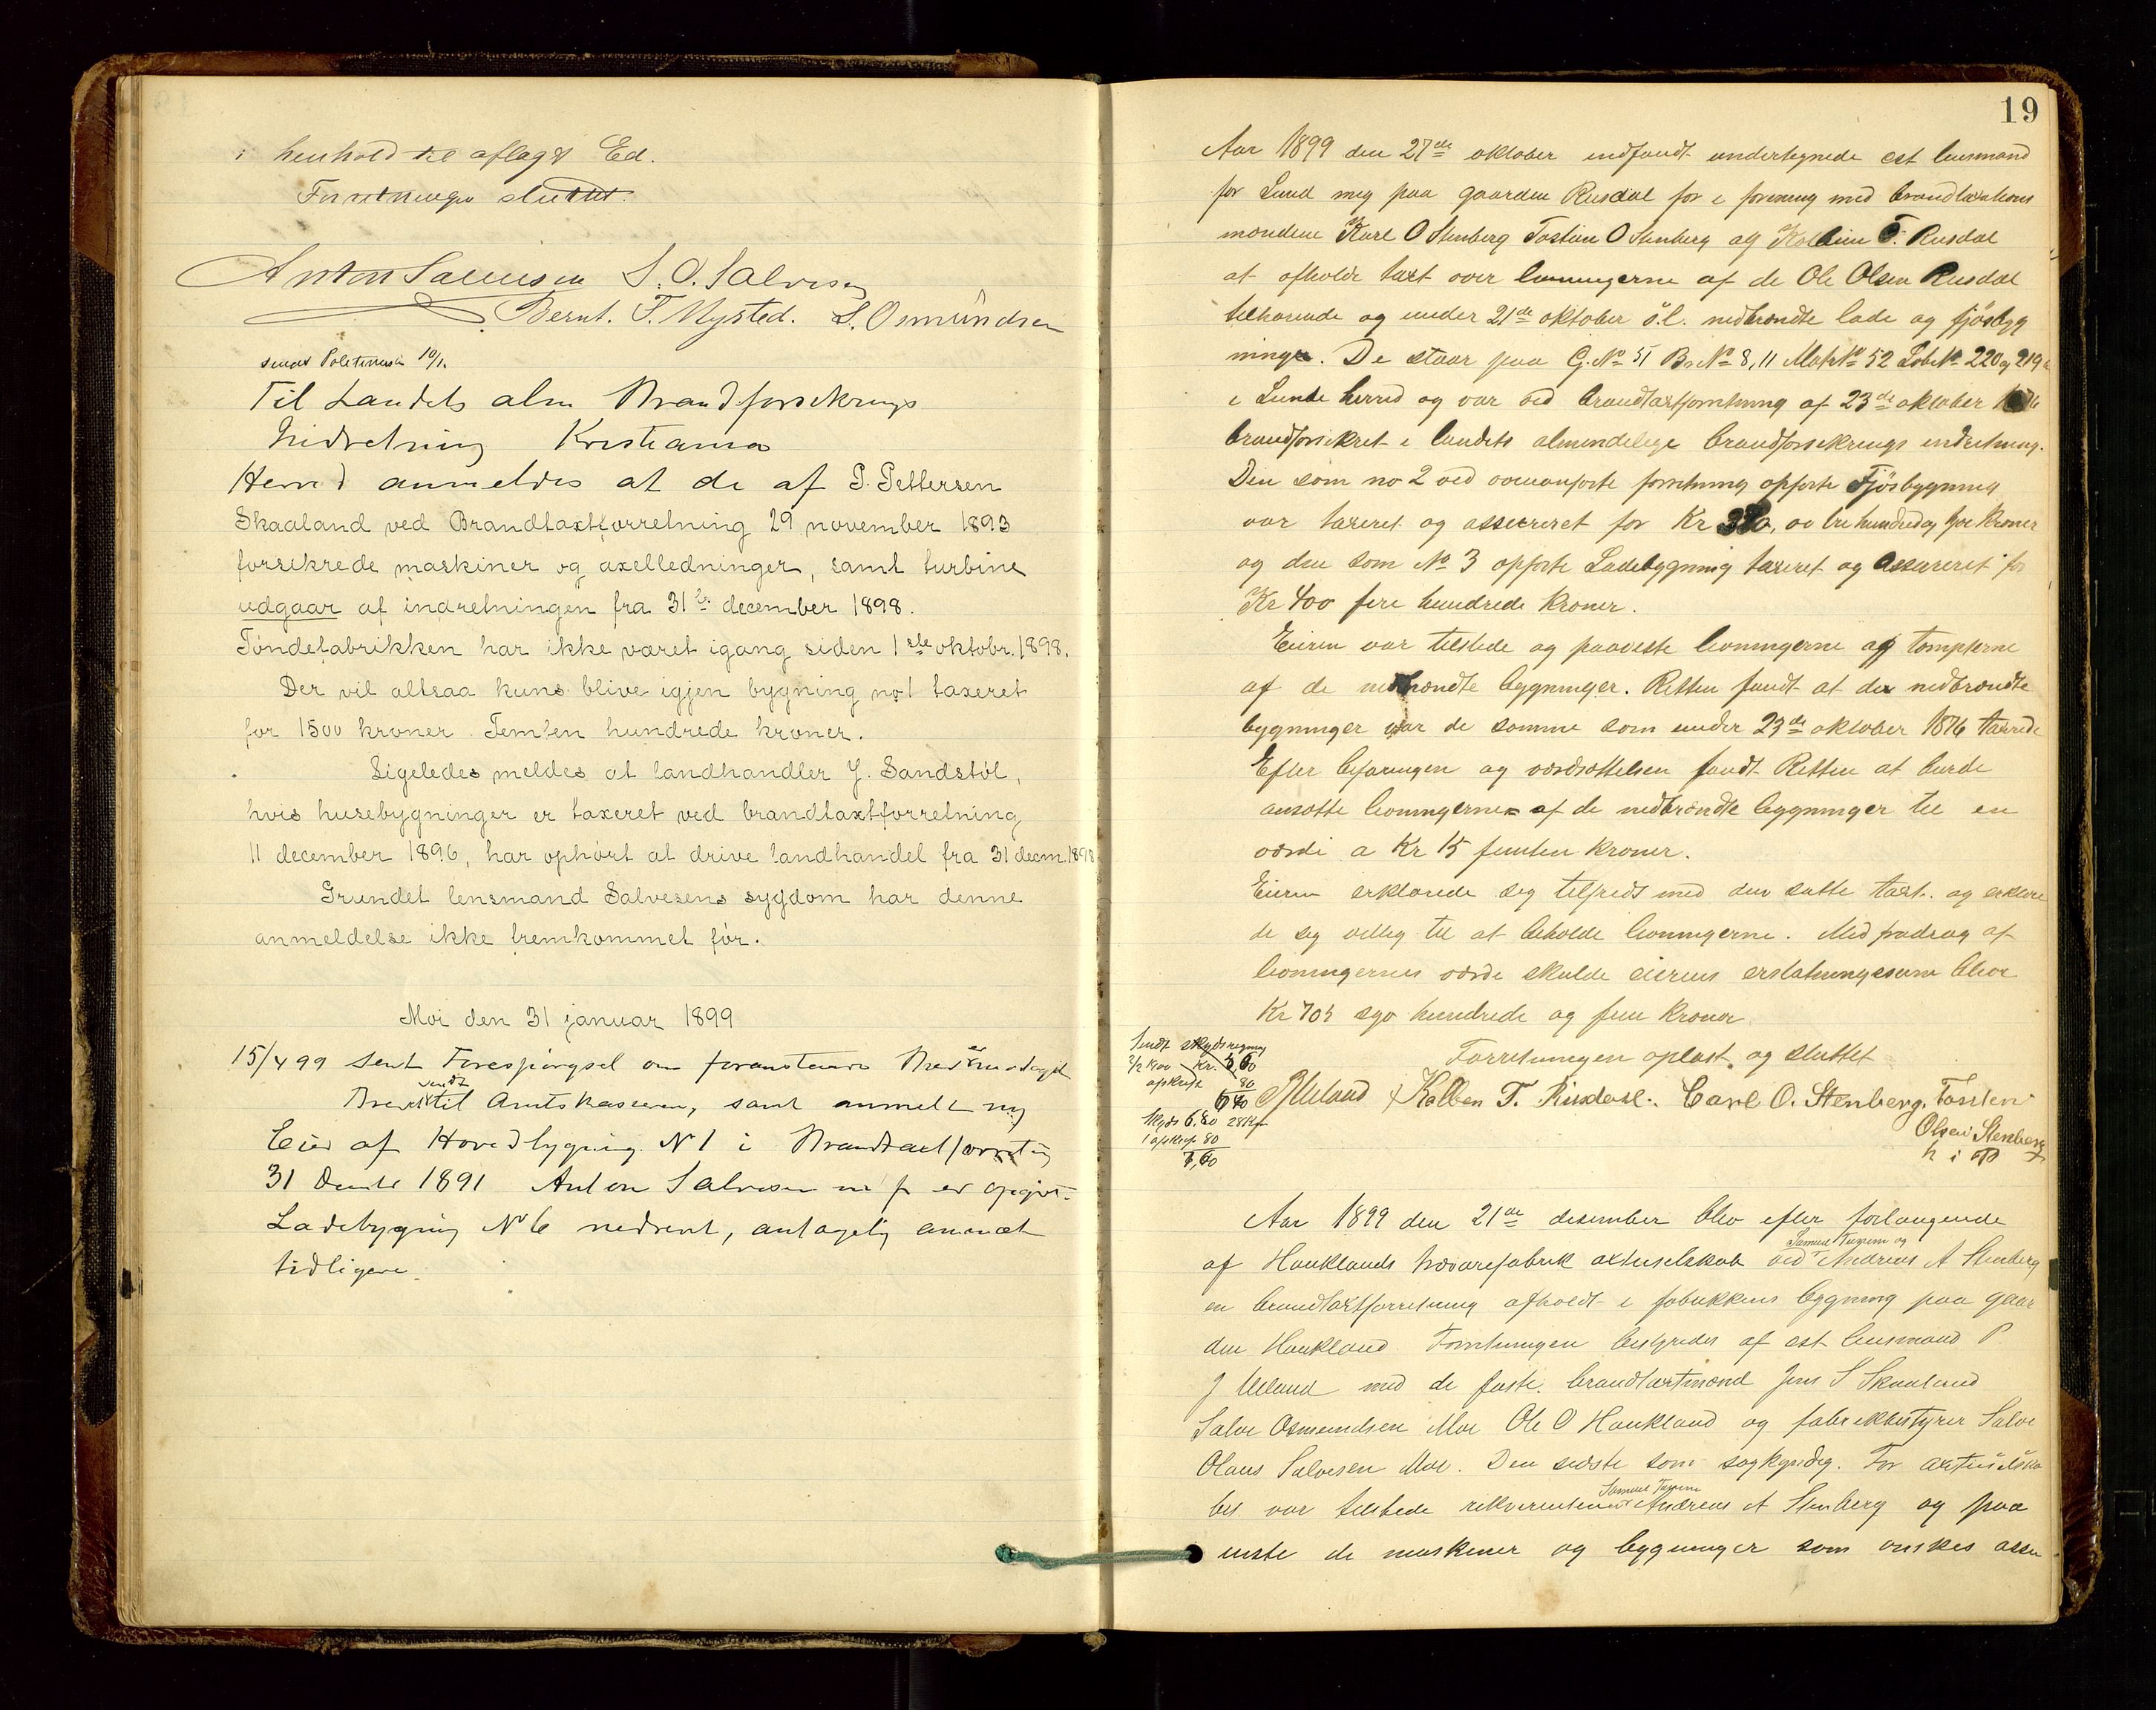 i henhold til aflagt Ed.
Forretningen sluttet.
Anton Salvesen S. O. Salvesen
Bernt. T. Nysted. S. Osmundsen
sendt Politimester 10/1.
Til Landets alm Brandforsikrings
Indretning Kristiania
Herved anmeldes at de af P. Pettersen
Skaaland ved Brandtaxtforretning 29 november 1893
forsikrede maskiner og axelledninger, samt turbine
udgaar af indretningen fra 31te december 1898.
Töndefabrikken har ikke været igang siden 1ste oktobr. 1898.
Der vil altsaa kuns blive igjen bygning no 1 taxeret
for 1500 kroner Femten hundrede kroner.
Ligeledes meldes at landhandler J. Sandstöl,
hvis husebygninger er taxeret ved brandtaxtforretning
11 december 1896, har ophört at drive landhandel fra 31 decm. 1898
Grundet lensmand Salvesens sygdom har denne
anmeldelse ikke fremkommet för.
Moi den 31 januar 1899
15/4 99 sent Forespörgsel om foranstaaende er modtaget
Brevet sendt til Amtskasseren, samt anmeldt ny
Eier af Hovedbygning N 1 i Brandtaxtforretning
31 Decmbr 1891 Anton Salvesen
Ladebygning N 6 nedrevet, antagelig anmeldt
tidligere.
19
Aar 1899 den 27de oktober indfandt undertegnede cst lensmand
for Lund mig paa gaarden Rusdal for i forening med brandtaxtations
mændene Karl O Stenberg Tostein O Stenberg og Kolbein T. Rusdal
at afholde taxt over levningerne af de Ole Olsen Rusdal
tilhørende og under 21de oktober d.l. nedbrændte lade og fjösbyg
ninger. De staar paa G. No 51 B. No 8, 11 Matr No 52 Løbe No 220 og 219a
i Lunde herred og var ved brandtaxtforretning af 23de oktober 1876
brandforsikret i landets almindelige brandforsikrings indretning.
Den som no 2 ved ovenanførte forretning opførte Fjösbygning
var taxeret og assureret for Kr 320, tre hundred og tyve kroner
og den som No 3 opførte Ladebygning taxeret og assureret for
Kr 400 fire hundrede kroner.
Eieren var tilstede og paaviste levningerne og tompterne
af de nedbrændte bygninger. Retten fandt at de nedbrændte
bygninger var de samme som under 23de oktober 1876 taxerede
Efter befaringen og værdsættelsen fandt Retten at burde
ansætte levningerne af de nedbrændte bygninger til en
værdi a Kr 15 femten kroner.
Eieren erklærede sig tilfreds med den satte taxt. og erklære
de sig villig til at beholde levningerne. Med fradrag af
levningernes værdi skulde eierens erstatningssum blive
Kr 705 syv hundrede og fem kroner
Forretningen oplæst og sluttet
Sendt skydsregning
2/2 1900 Kr. 5,60
afskrift 80
6 40
Skyds 6.80 28 Kf
1 afskrift 80
7,60
P J Ueland Kolben T. Rusdal. Carl O. Stenberg. Tosten
Olsen Stenberg
h i P
Aar 1899 den 21de desember blev efter forlangende
Samuel Tuxern og
af Hauklands trævarefabrik aktieselskab ved Andreas A Stenberg
en brandtaxtforretning afholdt i fabrikkens bygning paa gaar
den Haukland. Forretningen bestyredes af cst lensmand P
J Ueland med de faste brandtaxtmænd Jens S Skaaland
Salve Osmundsen Moi Ole O Haukland og fabrikbestyrer Salve
Olaus Salvesen Moi. Den sidste som sagkyndig. For aktieselska
Samuel Tuxern
bet var tilstede rekvirenterne Andreas A Stenberg og paa
viste de maskiner og bygninger som ønskes assu